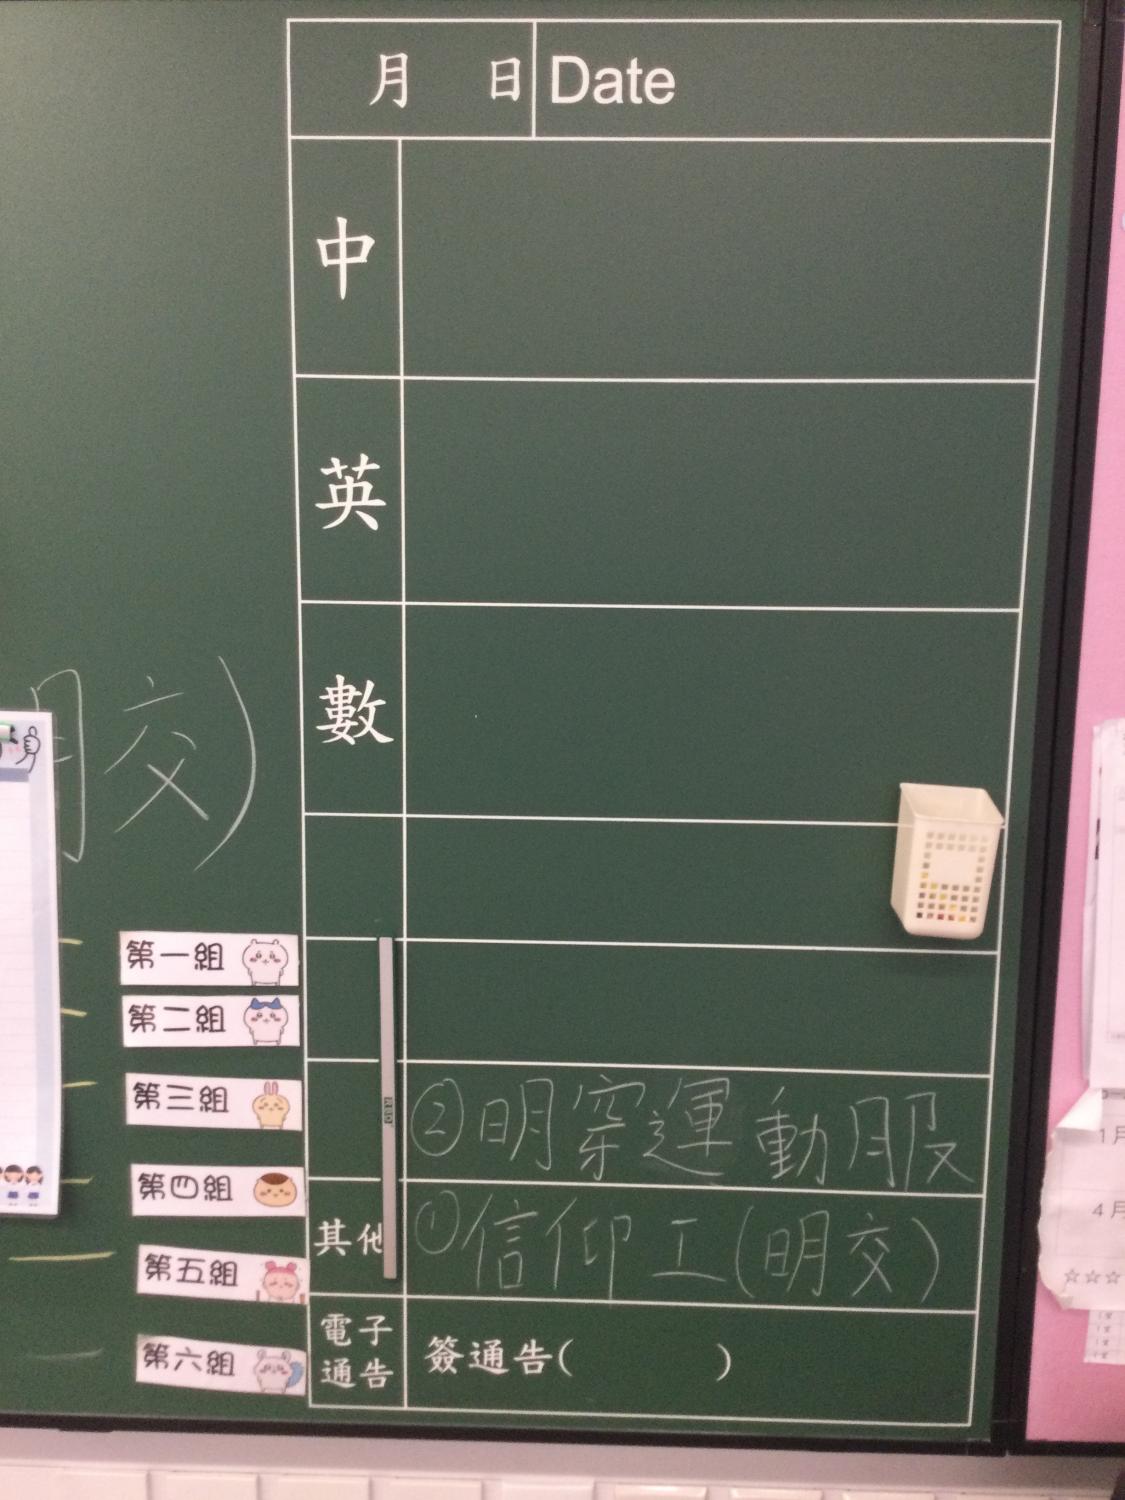 月 日 Date
中
英
數
交)
第一組
第二組
第三組
②明穿運動服
第四組
其他 ①信仰工(明交)
第五組
電子通告 簽通告( )
第六組
1月
4月
☆☆☆